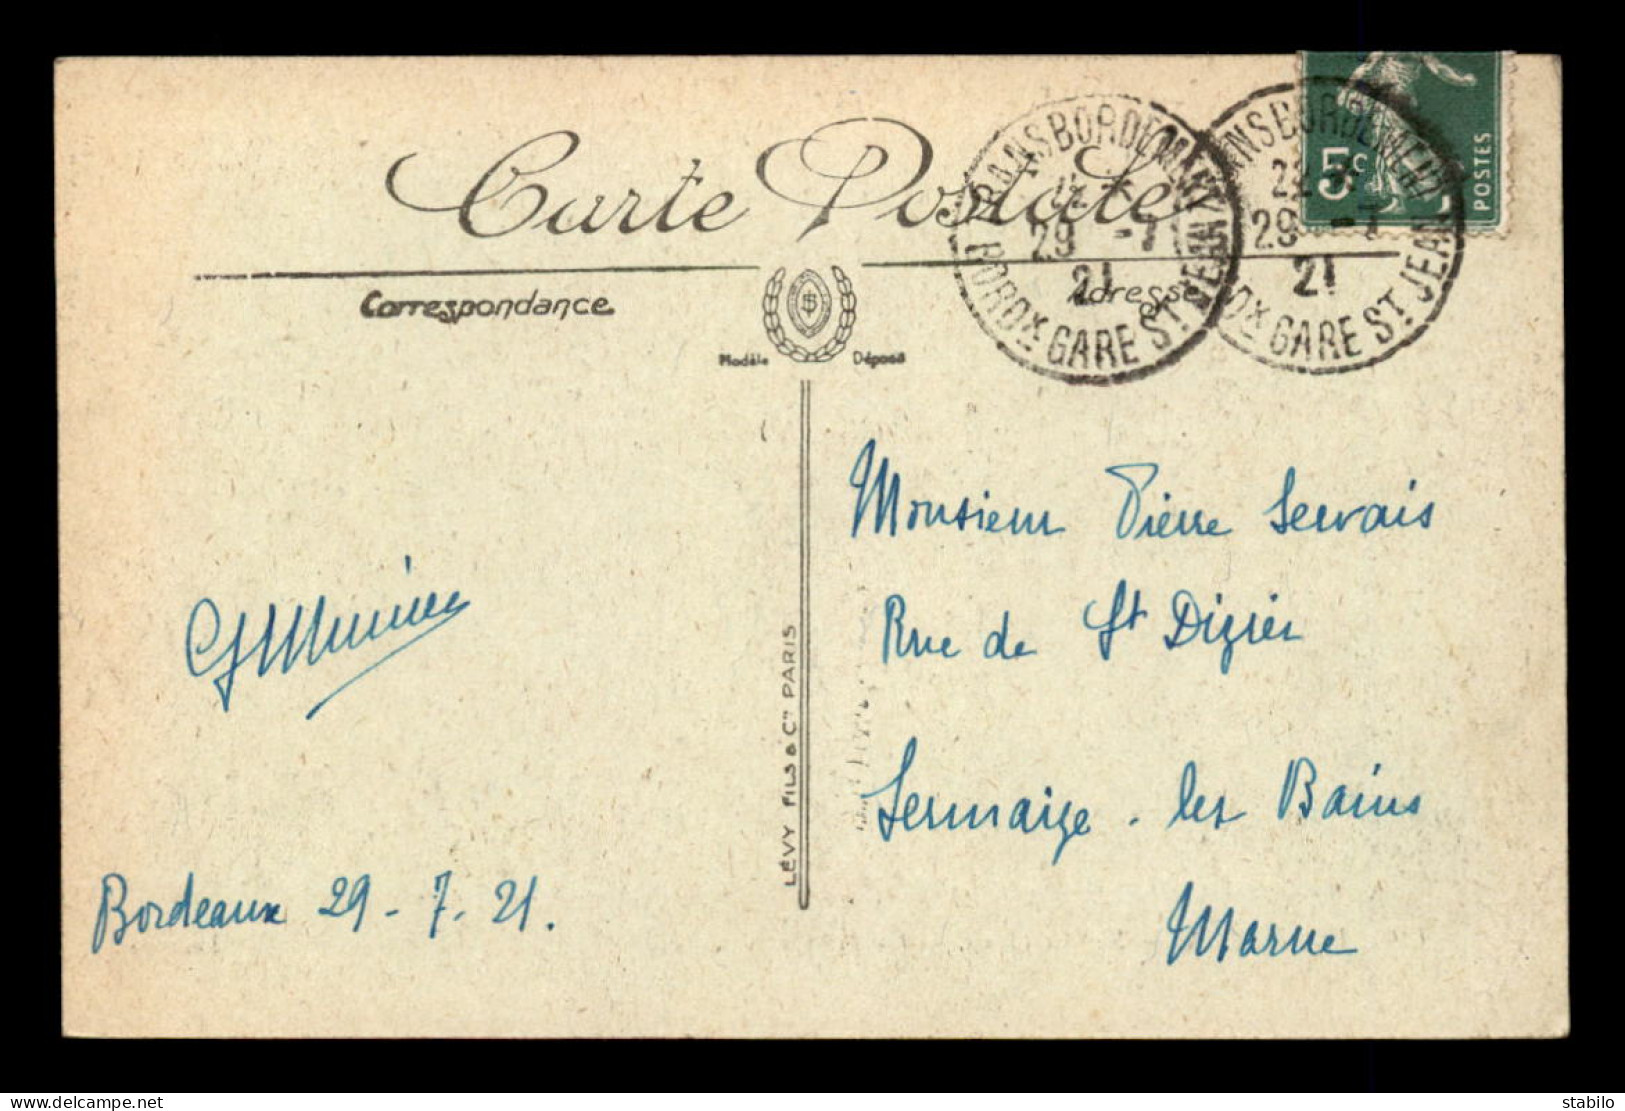 Carte Postale
Correspondance
Adresse
Modèle Déposé
TRANSBORDEMENT
22 *
29 -7
21
BORDX GARE ST JEAN
TRANSBORDEMENT
22 *
29 -7
21
BORDX GARE ST JEAN
5c
POSTES
Monsieur Pierre Servais
Rue de St Dizier
Sermaize - les Bains
Marne
Bordeaux 29 - 7 - 21.
LÉVY FILS & Cie PARIS
delcampe.net
stabilo